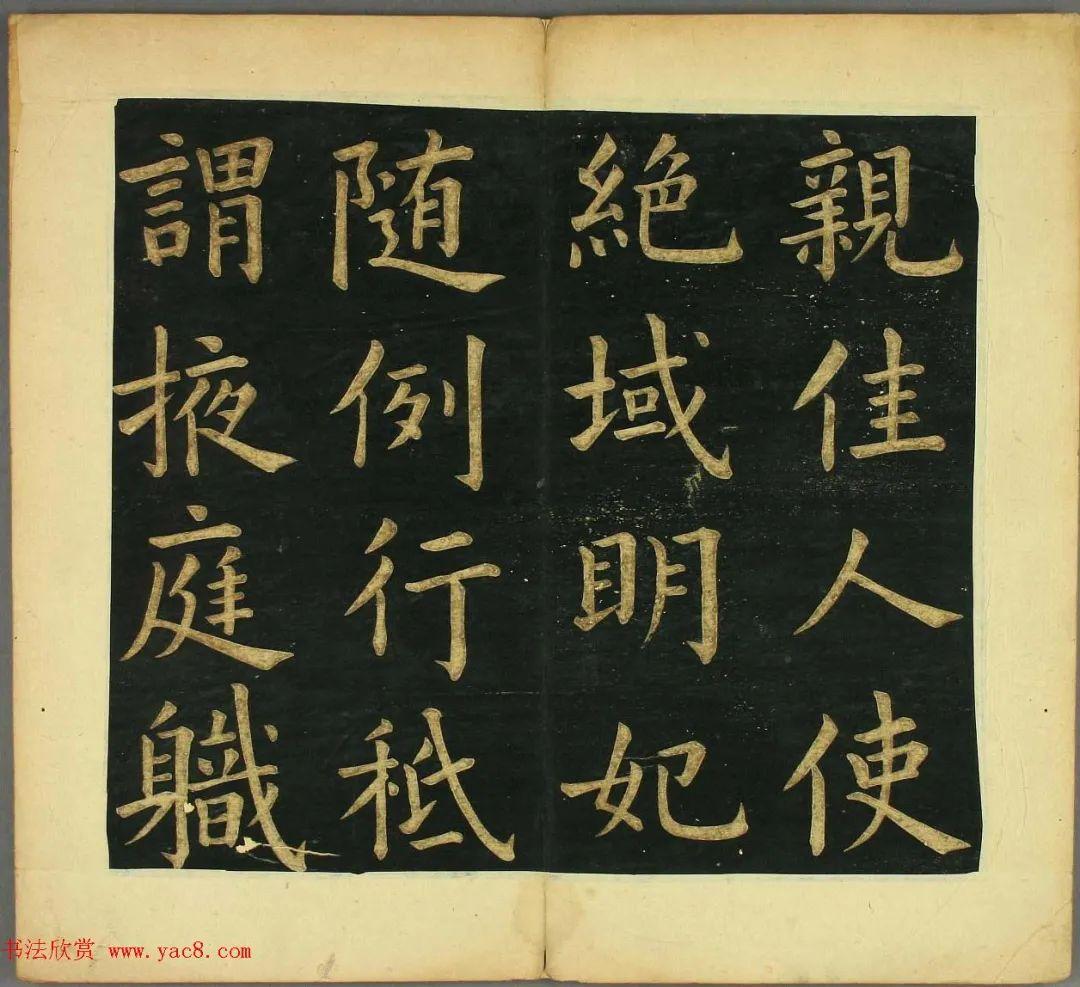 親佳人使
絶域明妃
随例行秖
謂掖庭軄
书法欣赏 www.yac8.com